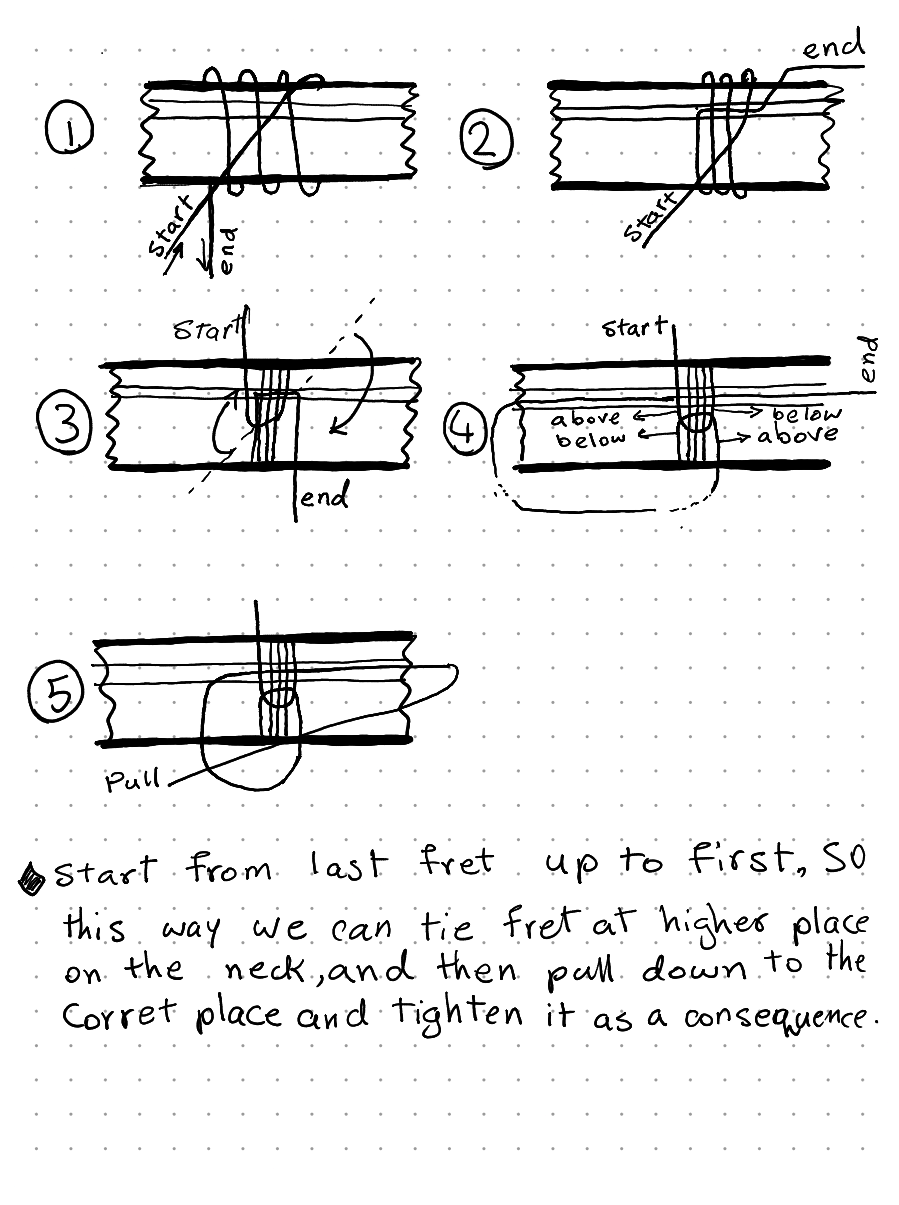 1
start
end
2
end
start
3
start
end
4
start
end
above
below
below
above
5
Pull
Start from last fret up to first, so
this way we can tie fret at higher place
on the neck, and then pull down to the
Corret place and tighten it as a consequence.